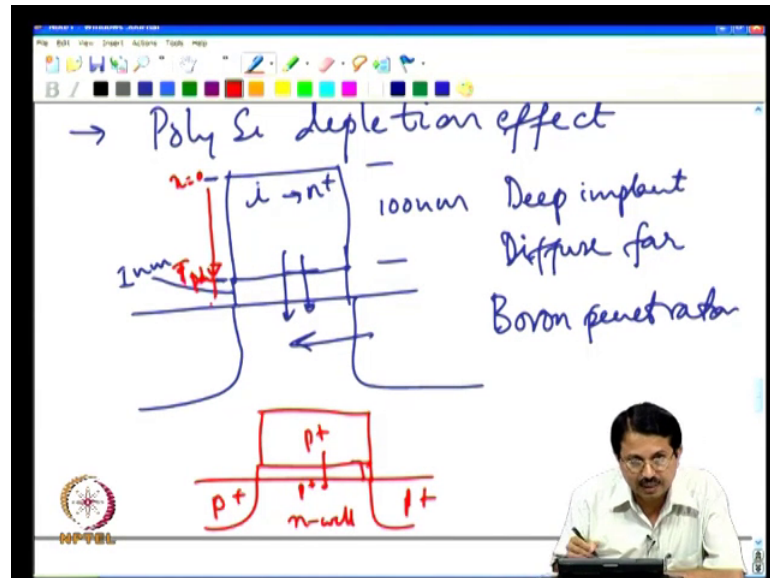 File Edit View Insert Actions Tools Help
B I
→ Poly Si depletion effect
x=0
i → n+
100nm
Deep implant
Diffuse far
1nm
Boron penetration
p+
p+
p+
n-well
p+
NPTEL